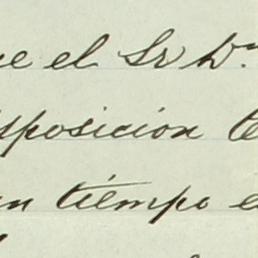 el Sr Dn
sposicion
tiempo